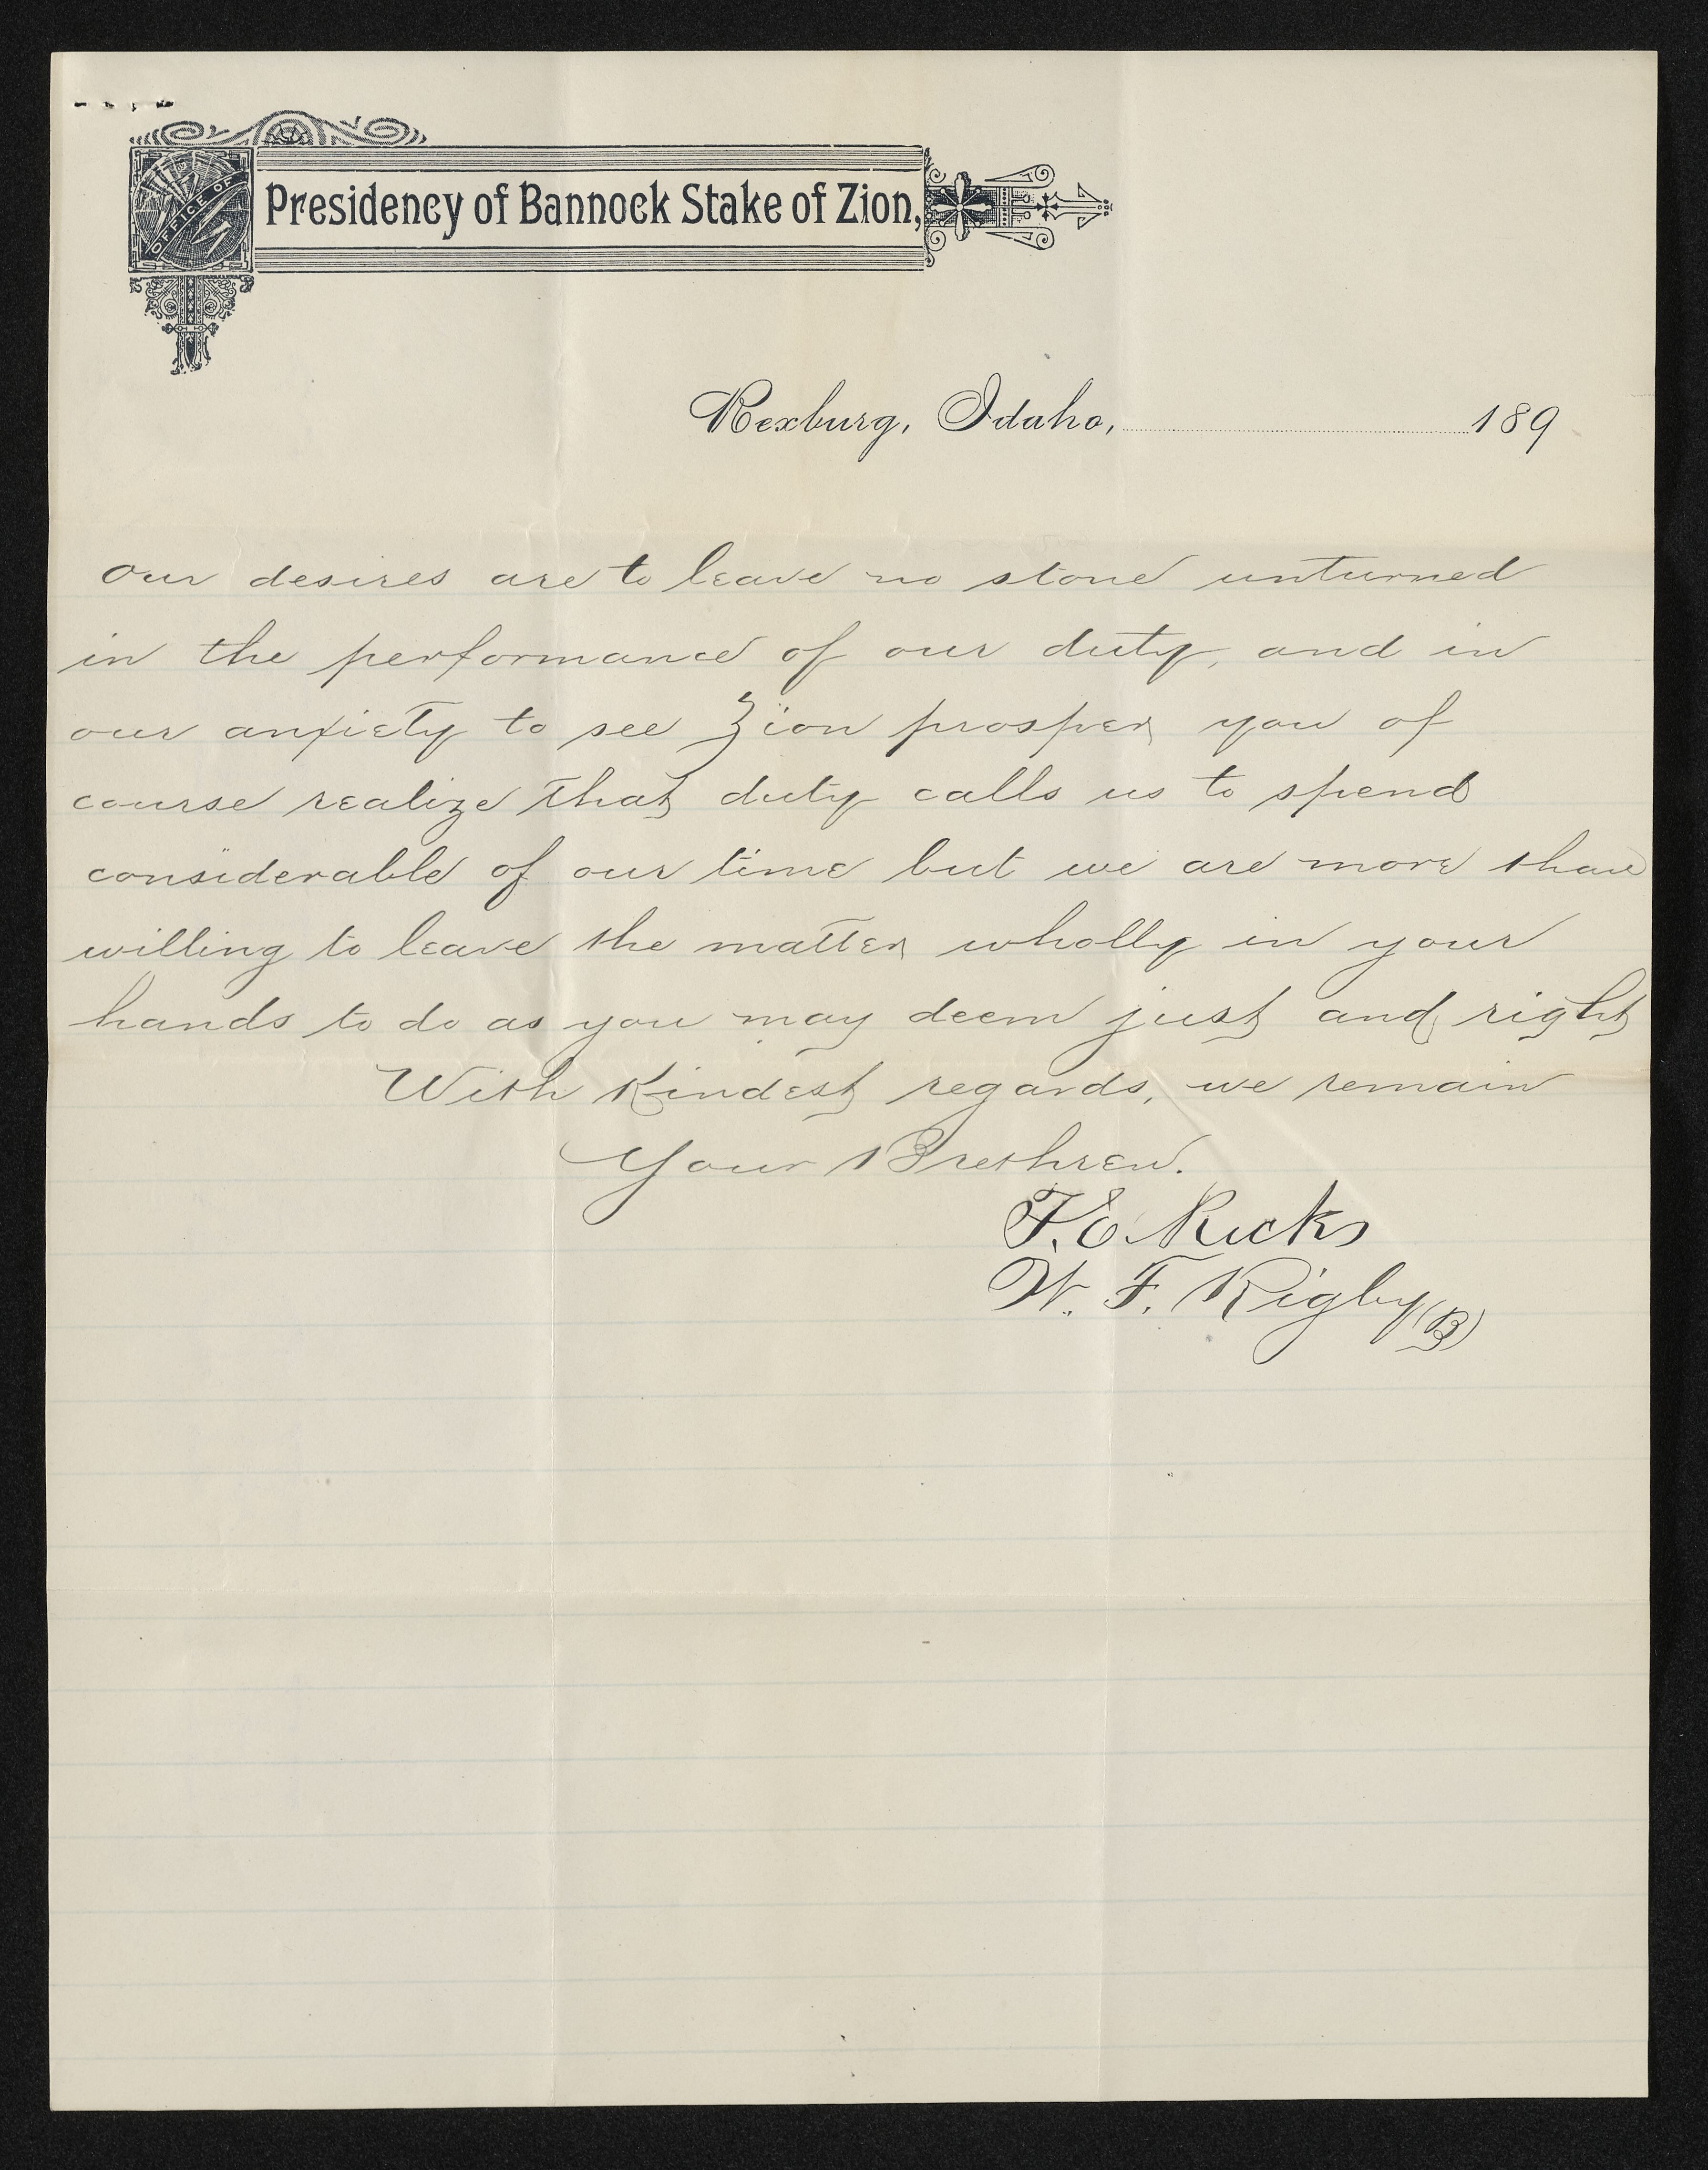 OFFICE OF
Presidency of Bannock Stake of Zion,
Rexburg, Idaho, 189
Our desires are to leave no stone unturned
in the performance of our duty, and in
our anxiety to see Zion prosper you of
course realize that duty calls us to spend
considerable of our time but we are more than
willing to leave the matter wholly in your
hands to do as you may deem just and right
With Kindest regards, we remain
Your Brethren.
T. E. Ricks
W. F. Rigby (B)